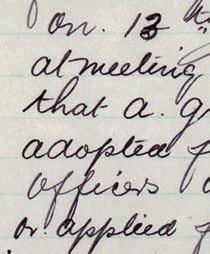 on. 13
at meeting
that a. g
adopted f
officers
or applied f